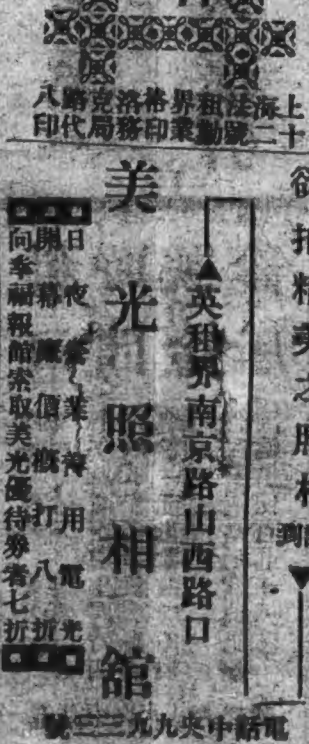 上海法租界格洛克路
十二號勤業印務局代印八
欲拍精美之肖相
請到
英租界南京路山西路口
美光照相館
日夜營業均用電光
開幕廉價概打八折
向幸福報館索取美光優待券者七折
電話中央九九三三號